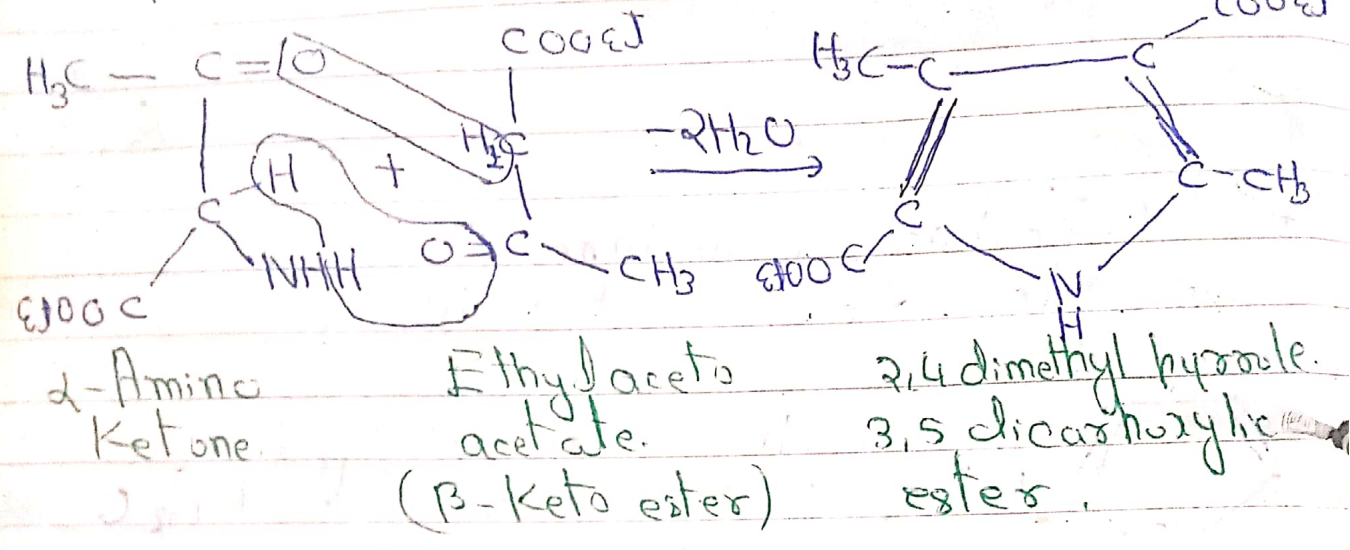 COOEt
COOEt
H3C — C = O
H3C - C — C
H2C
-2H2O
H +
C
C - CH3
C
NHH
O = C
CH3
EtOOC
EtOOC
N
H
α-Amino
Ketone.
Ethyl aceto
acetate.
(β-Keto ester)
2,4 dimethyl pyrrole.
3,5 dicarboxylic
ester.